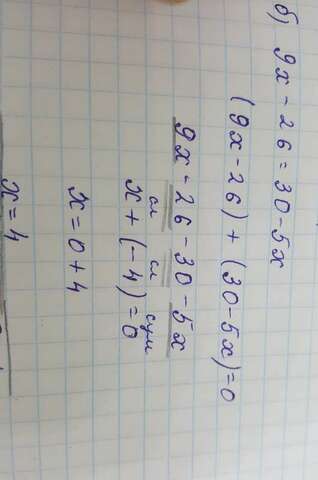 б) 9x - 26 = 30 - 5x
(9x - 26) + (30 - 5x) = 0
9x - 26 - 30 - 5x
сл сл сум
x + (-4) = 0
x = 0 + 4
x = 4